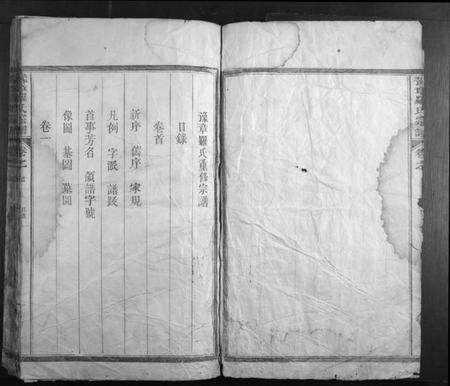 豫章羅氏重修宗譜
目錄
卷首
新序 舊序 家規
凡例 字派 譜跋
首事芳名 領譜字號
像圖 基圖 墓圖
卷一